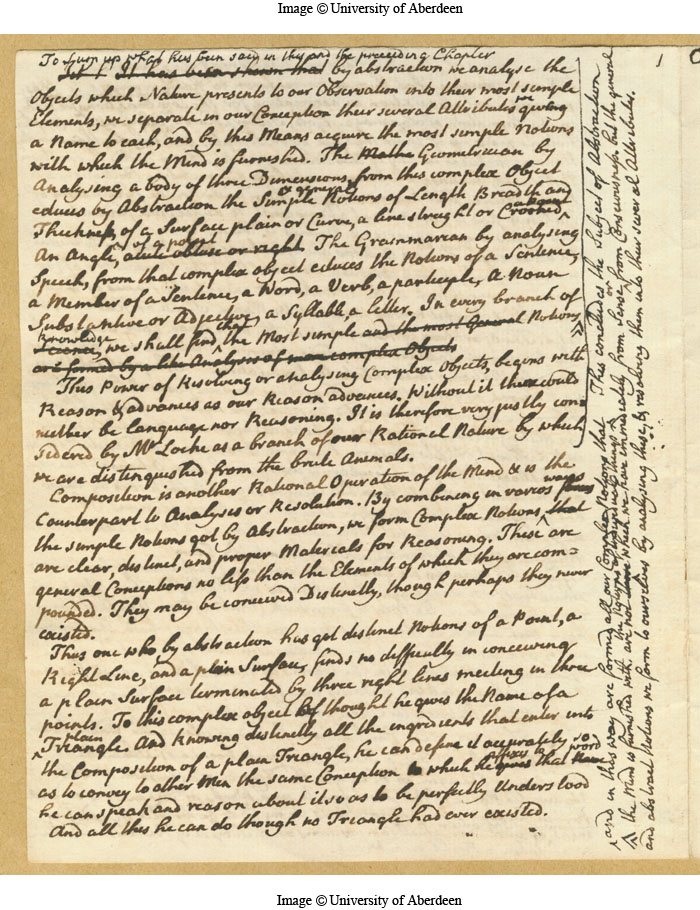 Image © University of Aberdeen
To sum up what has been said in this and the preceeding Chapter
It has been shown that by abstraction we analyse the
Objects which Nature presents to our Observation into their most simple
Elements, we separate in our Conception their several Attributes giving
we
a Name to each, and by this Means acquire the most simple Notions
with which the Mind is furnished. The Mathe Geometrician by
Analysing a body of three Dimensions, from this complex Object
educes by Abstraction the Simple Notions of Length Breadth and
& general
Thickness, of a Surface plain or Curve, a line streight or Crooked
a point
An Angle, acute obtuse or right. The Grammarean by analysing
Speech, from that complex object educes the Notions of a Sentence,
a Member of a Sentence, a Word, a Verb, a participle, A Noun
Substantive or Adjective, a Syllable, a letter. In every branch of
knowledge
Science, we shall find the Most simple and the most General Notions
that
are formed by a like Analysis of more complex Objects
This Power of Resolving or analysing Complex Objects, begins with
Reason & advances as our Reason advances. Without it there could
neither be language nor Reasoning. It is therefore very justly con-
sidered by Mr Locke as a branch of our Rational Nature by which
we are distinguished from the brute Animals.
Composition is another Rational Operation of the Mind & is the
Counterpart to Analysis or Resolution. By combining in varios ways
the simple Notions got by Abstraction, we form Complex Notions, that
are clear, distinct, and proper Materials for Reasoning. These are
general Conceptions no less than the Elements of which they are com=
pounded. They may be conceived Distinctly, though perhaps they never
existed.
Thus one who by abstraction has got distinct Notions of a Point, a
Right Line, and a plain Surface, finds no difficulty in conceiving
a plain Surface terminated by three right lines meeting in three
points. To this complex object of thought he gives the Name of a
plain
Triangle. And knowing distinctly all the ingredients that enter into
the Composition of a plain Triangle, he can define it accurately so
as to convey to other Men the same Conception to which he affixes that
word
he can speak and reason about it so as to be perfectly understood
And all this he can do though no Triangle had ever existed.
This concludes the Subject of Abstraction
and in this way are formed all our Complex Notions that
the Mind is furnished with are not which we have immediately from Sense or from Consciousness, but the general
and abstract Notions we form to ourselves by analysing these, & resolving them into their several Attributes.
1
Image © University of Aberdeen